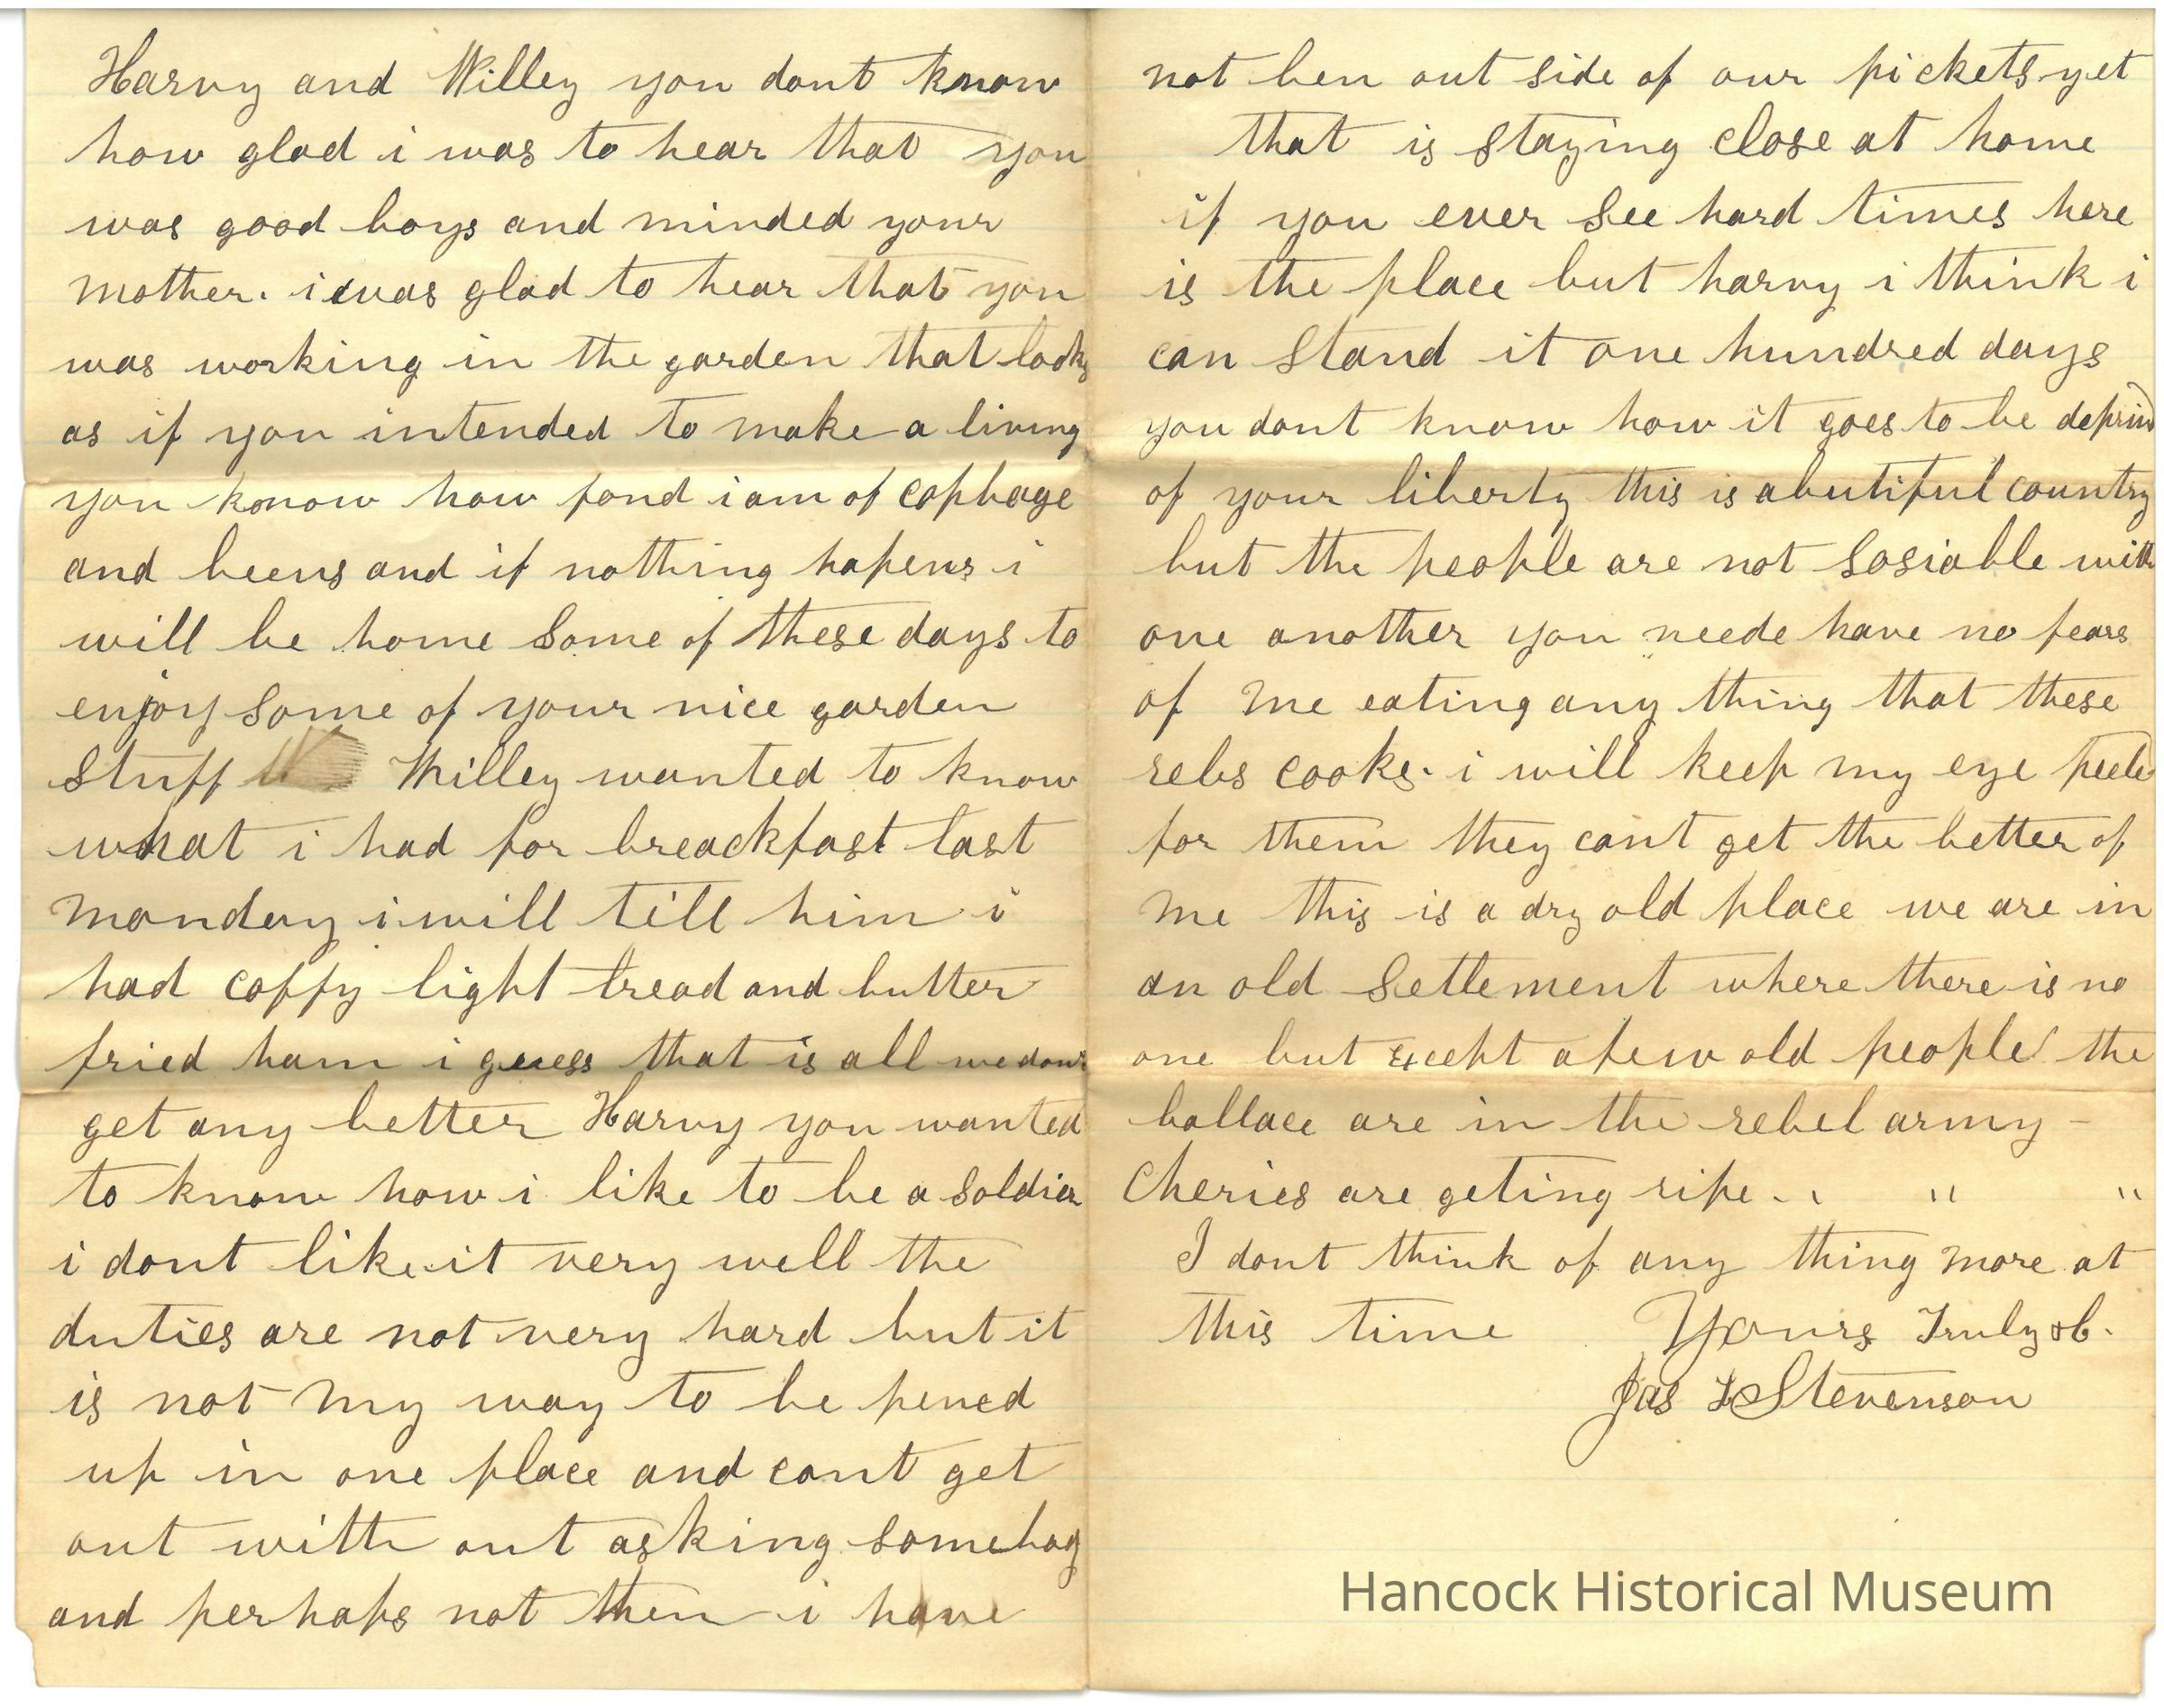 Harvy and Willey you dont know
how glad i was to hear that you
was good boys and minded your
mother. i was glad to hear that you
was working in the garden that looks
as if you intended to make a living
you konow how fond i am of cophage
and beens and if nothing hapens i
will be home Some of these days to
enjoy some of your nice garden
stuff Willey wanted to know
what i had for breackfast last
monday i will till him i
had coffy light bread and butter
fried ham i guess that is all we dont
get any better Harvy you wanted
to know how i like to be a soldier
i dont like it very well the
duties are not very hard but it
is not my way to be pened
up in one place and cant get
out with out asking somebody
and perhaps not then i have
not ben out side of our pickets yet
that is staying close at home
if you ever see hard times here
is the place but harvy i think i
can stand it one hundred days
you dont know how it goes to be depriv
of your liberty this is a butiful country
but the people are not sosiable with
one another you neede have no fears
of me eating any thing that these
rebs cooks. i will keep my eye peele
for them they cant get the better of
me this is a dry old place we are in
an old settlement where there is no
one but a few old people the
ballace are in the rebel army -
Cheries are geting ripe . " " "
I dont think of any thing more at
this time Yours Truly &c.
Jas Stevenson
Hancock Historical Museum